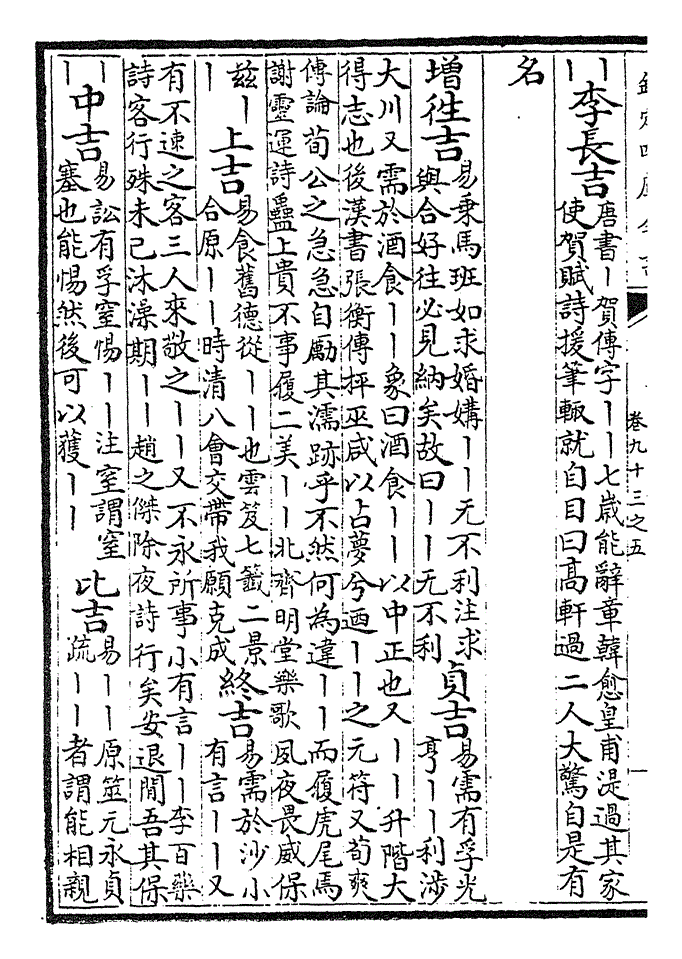 欽定四庫全書
卷九十三之五
一
丨丨李長吉
唐書丨賀傳字丨丨七歲能辭章韓愈皇甫湜過其家
使賀賦詩援筆輙就自目曰髙軒過二人大驚自是有
名
增徃吉
易乗馬班如求婚媾丨丨无不利注求
與合好往必見納矣故曰丨丨无不利
貞吉
易需有孚光
亨丨丨利涉
大川又需於酒食丨丨象曰酒食丨丨以中正也又丨丨升階大
得志也後漢書張衡傳抨巫咸以占夢兮迺丨丨之元符又荀爽
傳論荀公之急急自勵其濡跡乎不然何為違丨丨而履虎尾焉
謝靈運詩蠱上貴不事履二美丨丨北齊明堂樂歌夙夜畏威保
兹丨
丨
上吉
易食舊德從丨丨也雲笈七籖二景
合原丨丨時清八會交帶我願克成
終吉
易需於沙小
有言丨丨又
有不速之客三人來敬之丨丨又不永所事小有言丨丨李百藥
詩客行殊未已沐澡期丨丨趙之傑除夜詩行矣安退閒吾其保
丨
丨
中吉
易訟有孚窒惕丨丨注窒謂窒
塞也能惕然後可以獲丨丨
比吉
易丨丨原筮元永貞
疏丨丨者謂能相親